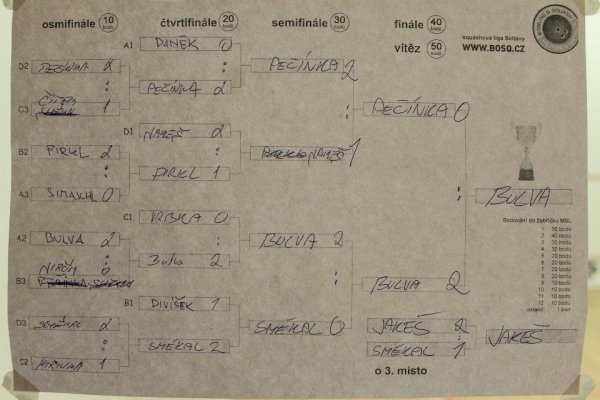 osmifinále 10 bodů
čtvrtifinále 20 bodů
semifinále 30 bodů
finále 40 bodů
vítěz 50 bodů
squashová liga Svitavy
WWW.BOSQ.CZ
BOWLING & SQUASH
D2 PEČINKA 2
:
C3 1
B2 PIRKL 2
:
A3 0
A2 BULVA 2
:
B3 0
D3 2
:
C2 1
A1 DANĚK 0
:
PEČINKA 2
D1 NAMEŠ 2
:
PIRKL 1
C1 VRBKA 0
:
Bulva 2
B1 DIVÍŠEK 1
:
SMÉKAL 2
PEČINKA 2
:
NAMEŠ 1
BULVA 2
:
SMÉKAL 0
PEČINKA 0
:
BULVA 2
BULVA
JAKEŠ 2
SMÉKAL 1
o 3. místo
JAKEŠ
Bodování do žebříčku MSL
1 50 bodů
2 40 bodů
3 35 bodů
4 30 bodů
5 20 bodů
6 20 bodů
7 20 bodů
8 20 bodů
9 10 bodů
10 10 bodů
11 10 bodů
12 10 bodů
ostatní 1 bod